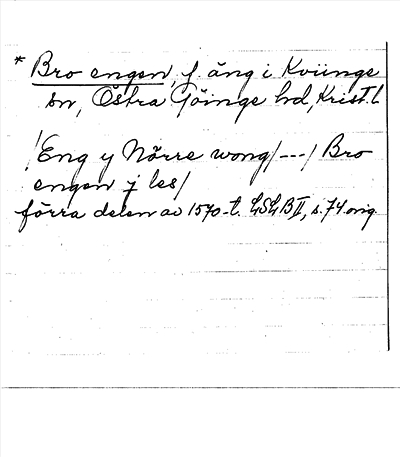 * Bro engen, f. äng i Kviinge
sn, Östra Göinge hd, Krist. l.
/Eng y Nörre wong/---/ Bro
engen j les/
förra delen av 1570-t. LSLB II, s. 74 orig